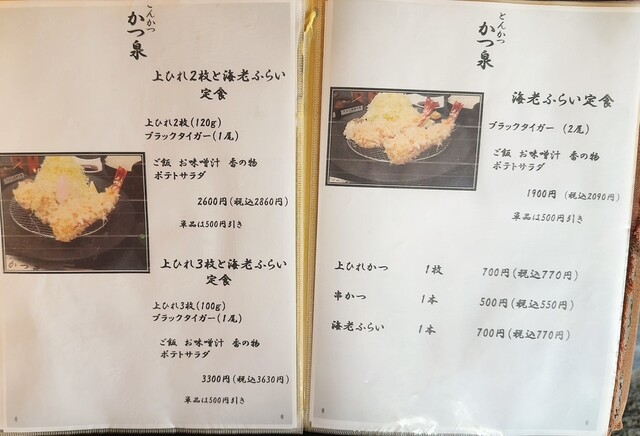 とんかつ
かつ泉
上ひれ2枚と海老ふらい
定食
上ひれ2枚(120g)
ブラックタイガー(1尾)
ご飯 お味噌汁 香の物
ポテトサラダ
2600円(税込2860円)
単品は500円引き
上ひれ3枚と海老ふらい
定食
上ひれ3枚(100g)
ブラックタイガー(1尾)
ご飯 お味噌汁 香の物
ポテトサラダ
3300円(税込3630円)
単品は500円引き
とんかつ
かつ泉
海老ふらい定食
ブラックタイガー (2尾)
ご飯 お味噌汁 香の物
ポテトサラダ
1900円 (税込2090円)
単品は500円引き
上ひれかつ 1枚 700円(税込770円)
串かつ 1本 500円(税込550円)
海老ふらい 1本 700円(税込770円)